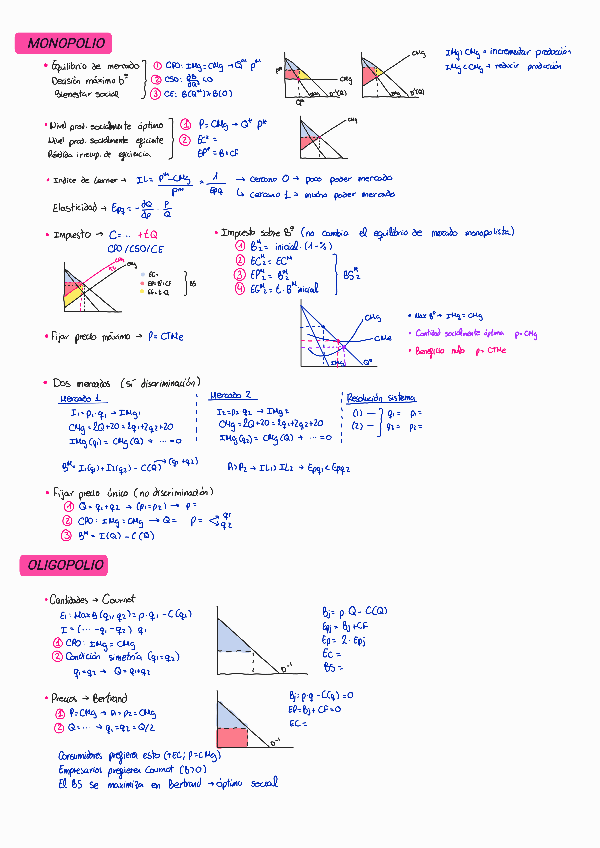 MONOPOLIO
• Equilibrio de mercado ① CPO: IMg = CMg → Qᴹ pᴹ
Decisión máximo bº ② CSO: <0
Bienestar social ③ CE: B(Qᴹ) ≥ B(0)
IMg > CMg → incrementar producción
IMg < CMg → reducir producción
pᴹ CMg IMg D⁻¹(Q) Qᴹ
CMg IMg D⁻¹(Q)
• Nivel prod. socialmente óptimo ① P = CMg → Q* p*
Nivel prod. socialmente eficiente ② EC* =
Pérdida irrecup. de eficiencia EP* = B + CF
CMg
• Indice de Lerner → IL = (pᴹ - CMg) / pᴹ = 1 / Epq → cercano 0 → poco poder mercado
↳ cercano 1 → mucho poder mercado
Elasticidad → Epq = - dQ/dp · p/Q
• Impuesto → C = ... + tQ
CPO / CSO / CE
CMg
CMg
EC =
EP = B + CF
EG = t · Q
BS
• Impuesto sobre Bº (no cambia el equilibrio de mercado monopolista)
① B₂ᴹ = inicial · (1 - %)
② EC₂ᴹ = ECᴹ
③ EP₂ᴹ = B₂ᴹ
④ EG₂ᴹ = t · Bᴹ inicial
BS₂ᴹ
• Fijar precio máximo → P = CTMe
CMg
CMe
IMg Qᴰ
• Max Bº → IMg = CMg
• Cantidad socialmente óptima p = CMg
• Beneficio nulo p = CTMe
• Dos mercados (sí discriminación)
Mercado 1
I₁ = p₁ · q₁ → IMg₁
CMg = 2Q + 20 = 2q₁ + 2q₂ + 20
IMg(q₁) = CMg(Q) → ... = 0
Mercado 2
I₂ = p₂ · q₂ → IMg₂
CMg = 2Q + 20 = 2q₁ + 2q₂ + 20
IMg(q₂) = CMg(Q) → ... = 0
Resolución sistema
(1) — q₁ = p₁ =
(2) — q₂ = p₂ =
Bᴹ = I₁(q₁) + I₂(q₂) - C(Q) → (q₁ + q₂)
P₁ > P₂ → IL₁ > IL₂ → Epq₁ < Epq₂
• Fijar precio único (no discriminación)
① Q = q₁ + q₂ → (p₁ = p₂) → p =
② CPO: IMg = CMg → Q = p = q₁ q₂
③ Bᴹ = I(Q) - C(Q)
OLIGOPOLIO
• Cantidades → Cournot
E₁: Max B(q₁, q₂) = p · q₁ - C(q₁)
I = (... - q₁ - q₂) q₁
① CPO: IMg = CMg
② Condición simetría (q₁ = q₂)
q₁ = q₂ → Q = q₁ + q₂
D⁻¹
Bj = p · Q - C(Q)
Epj = Bj + CF
Ep = 2 · Epj
EC =
BS =
• Precios → Bertrand
① P = CMg → p₁ = p₂ = CMg
② Q = ... → q₁ = q₂ = Q/2
D⁻¹
Bj = p · q - C(q) = 0
EP = Bj + CF = 0
EC =
Consumidores prefieren esto (↑EC; P = CMg)
Empresarios prefieren Cournot (B > 0)
El BS se maximiza en Bertrand → óptimo social